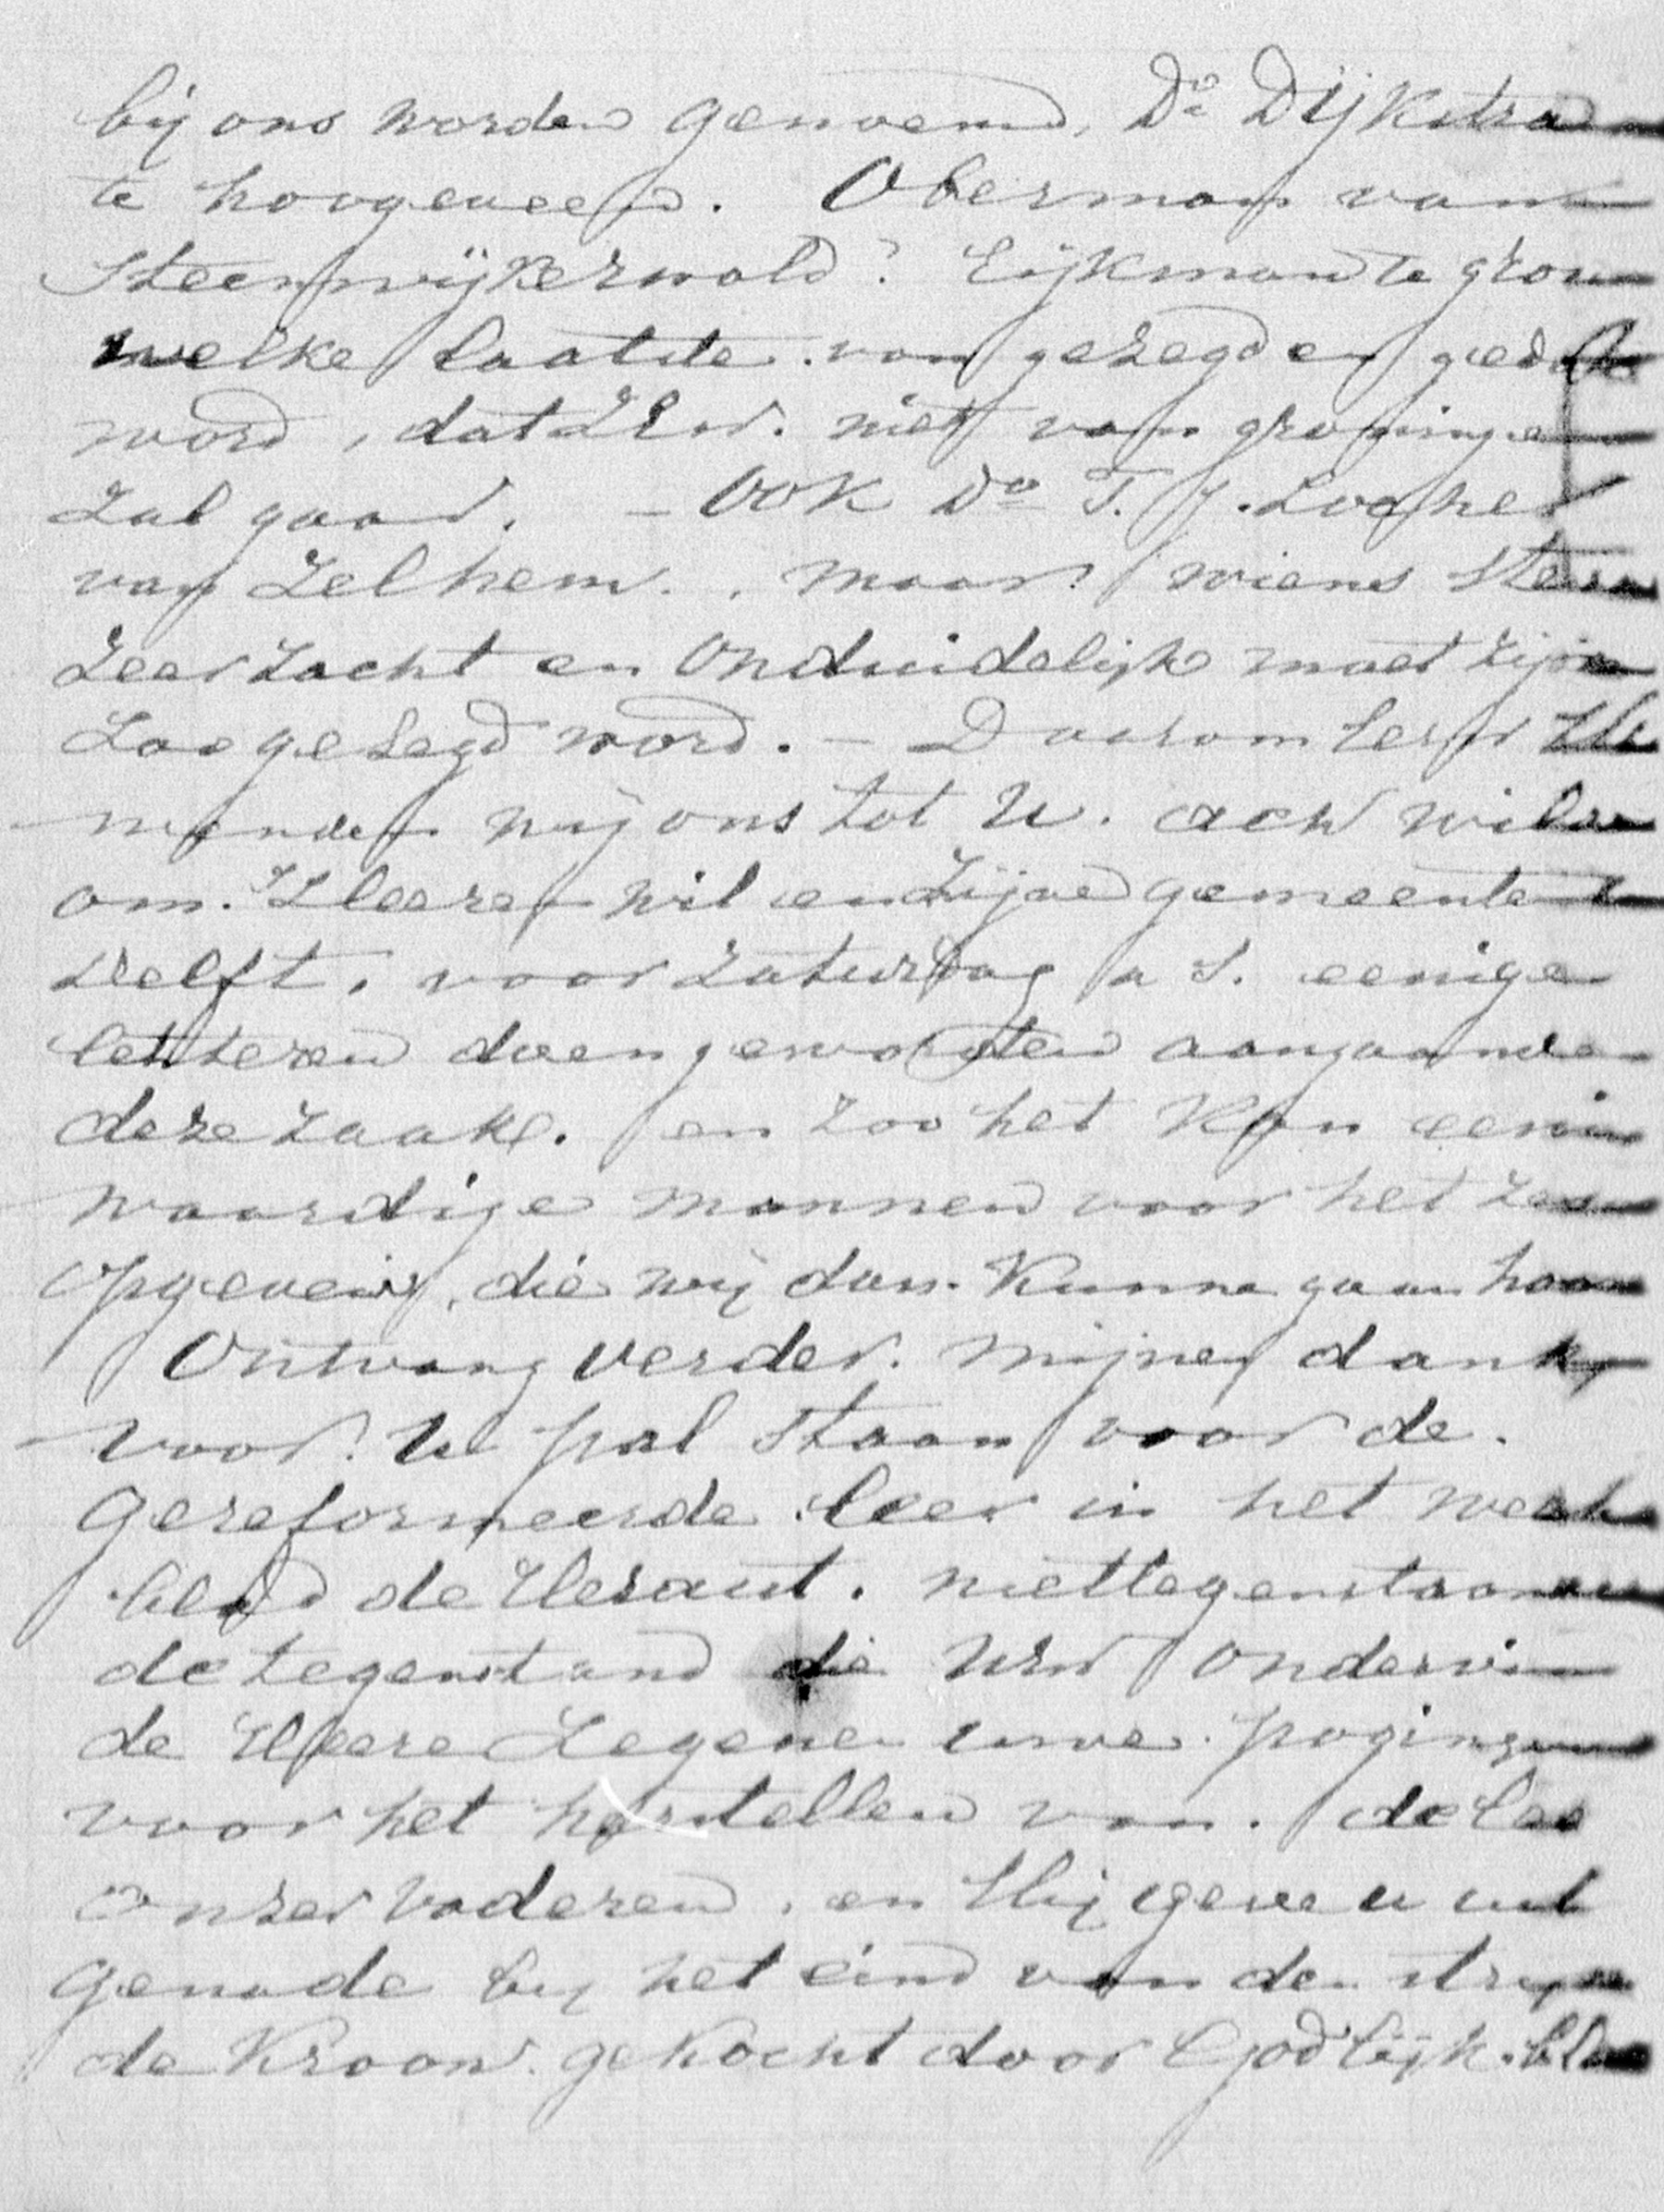 bij ons worden genoemd, Ds Dijkstra
te hoogeveen. Oberman van
Steenwijkerwold? Eijkman te grou
welke laatste van gezegd en gedacht
word, dat ZEw. niet van groningen
zal gaan. - Ook Ds T. J. Locher
van Zelhem. maar wiens stem
zeer zacht en Onduidelijk moet zijn
Zoo gezegd word. - Daarom
wenden wij ons tot U. ach wil
om. s Heeren wil en Zijne gemeente
Delft, voor zaturdag a s. eenige
letteren doen geworden aangaande
deze zaake. en zoo het kon
waardige mannen voor het
Opgeven, die wij dan kunne gaan hooren
Ontvang verder. mijnen dank
voor. U pal staan voor de.
Gereformeerde leer in het week
blad de Heraut. niettegenstaande
de tegenstand die UEw ondervin
de Heere Zegene uwe pogingen
voor het herstellen van. de leer
onzer vaderen, en Hij geve u uit
genade bij het eind van den strijd
de Kroon gekocht door Godlijk.